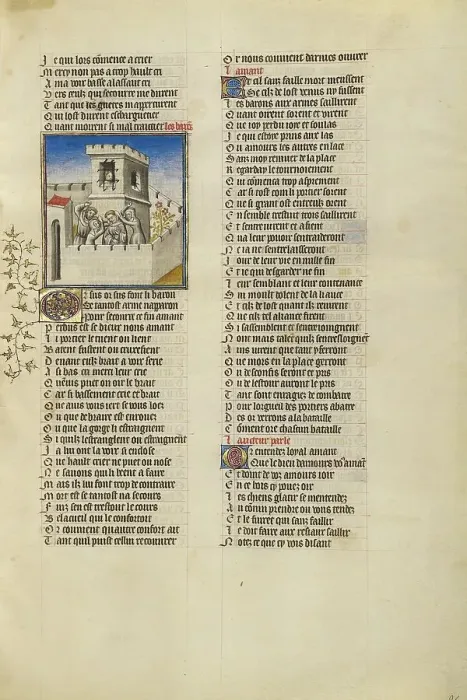 J e qui lors cōmence a crier
M ercy non pas a trop hault cri
A ma voix basse a lassaut cri
V ers ceulz qui secourre me durent
T ant que les guetes mapperceurent
Q ui lost durent eschargueter
Q uant mouroient si mal traictier les bars
O r sus or sus font li baron
S e tantost armé naparon
P our secourre ce fin amant
P erdus est se dieux nous amant
L i portier le tuent ou lient
B atent fustent ou crucefient
D euant eulz brait a voix serie
A si bas cri merci leur crie
Q uenuis puet on oir le brait
C ar si bassement crie et brait
Q ue auis vous iert se vous loez
O u que de braire est enroez
O u que la gorge li estraignent
S i quilz lestranglent ou estraignent
J a lui ont la voix si enclose
Q ue hault crier ne puet ou nose
N e sauons quil beent a faire
M ais ilz lui font trop de contraire
M ort est se tantost na secours
F uiz sen est trestout le cours
B elacueil qui le confortoit
O r couuient quautre confort ait
T ant quil puist cellui recouurer
O r nous couuient darmes ouurer
Lamant
E t cil sanz faille mort meussent
S e cilz de lost venus ny fussent
L es barons aux armes saillirent
Q uant oirent sorent et virent
Q ue ioy perdu ioie et soulas
J e qui estoie prins aux las
O u amours les autres enlace
S anz moy remuer de la place
R egarday le tournoiement
Q ui cōmença trop asprement
C ar si tost com li portier sorent
Q ue si grant ost entreulz orent
E nsemble trestuit trois sallierent
E t sentreiurent et afient
Q ua leur pouoir sentraideront
N e ia ne sentrelaisseront
J our de leur vie en nulle fin
E t ie qui desgarder ne fin
L eur semblant et leur contenance
S ui moult dolent de laliance
E t cilz de lost quant ilz reuirent
Q ue cilz tel aliance firent
S i sassemblent et sentreioingnent
N ont mais talēt quilz sentresloingnēt
A ins iurent que tant y ferront
Q ue mors en la place gerront
O u desconfis seront et pris
O u de lestour auront le pris
T ant sont enragiez de combatre
P our lorgueil des portiers abatre
D es or verrons a la bataille
C ōment ore chascun bataille
Lauteur parle
O r entendez loyal amant
Q ue le dieu damours vo⁹ amāt
E t doint de voz amours ioir
E n ce bois cy pouez oir
L es chiens glatir se mentendez
A u cōnin prendre ou vous tendez
E t le fuiret qui sanz faillir
L e doit faire aux resiaux saillir
N otez ce que cy vois disant